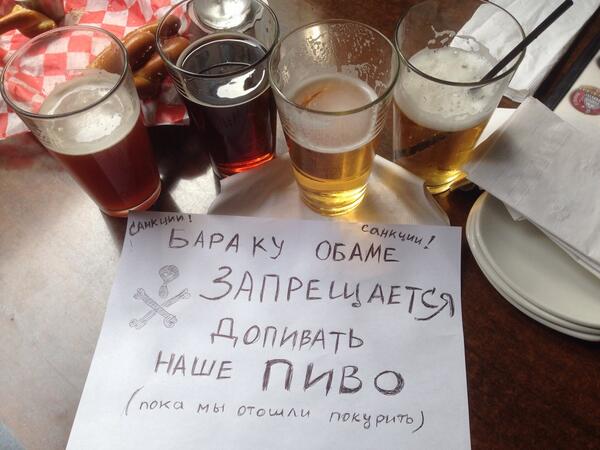 САНКЦИИ! САНКЦИИ!
БАРАКУ ОБАМЕ
ЗАПРЕЩАЕТСЯ
ДОПИВАТЬ
НАШЕ ПИВО
(пока мы отошли покурить)